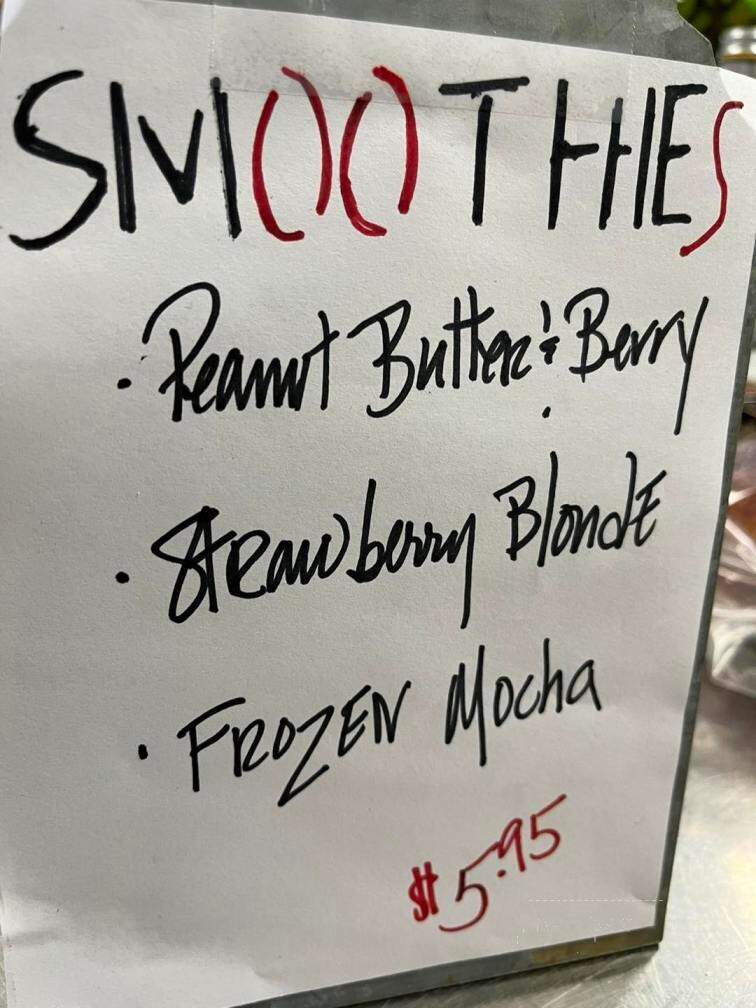 SMOOTHIES
· Peanut Butter & Berry
· Strawberry Blonde
· FROZEN Mocha
$5.95